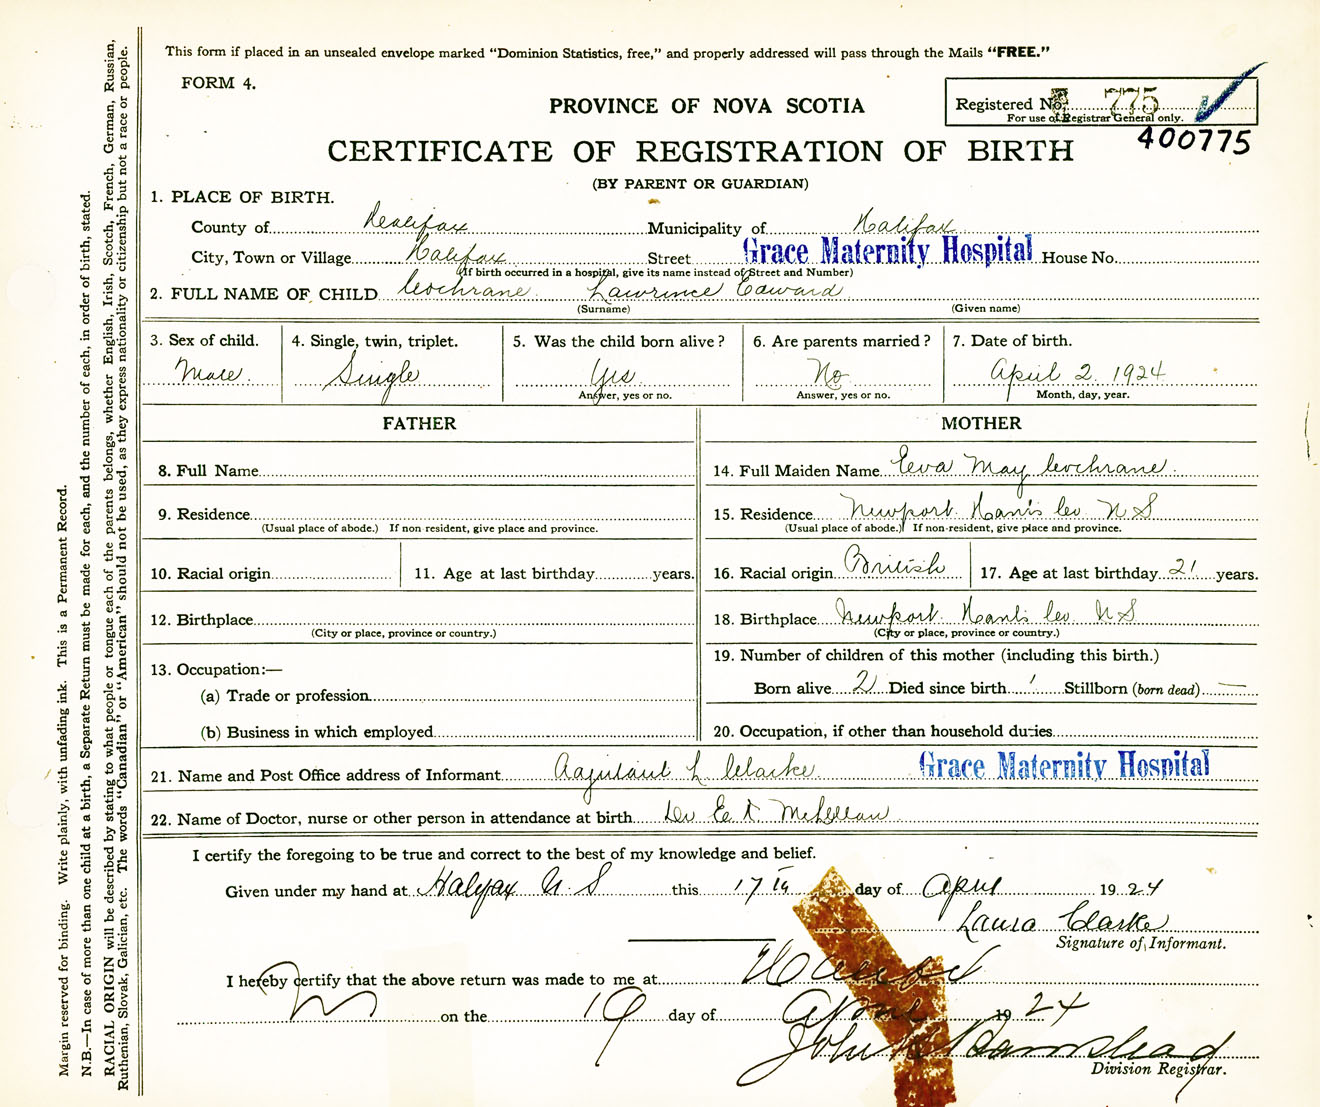 This form if placed in an unsealed envelope marked "Dominion Statistics, free," and properly addressed will pass through the Mails "FREE."
FORM 4.
PROVINCE OF NOVA SCOTIA
Registered No. 775
For use of Registrar General only.
400775
CERTIFICATE OF REGISTRATION OF BIRTH
(BY PARENT OR GUARDIAN)
1. PLACE OF BIRTH.
County of Halifax Municipality of Halifax
City, Town or Village Halifax Street Grace Maternity Hospital House No.
(If birth occurred in a hospital, give its name instead of Street and Number)
2. FULL NAME OF CHILD Cochrane Lawrence Edward
(Surname) (Given name)
3. Sex of child. 4. Single, twin, triplet. 5. Was the child born alive? 6. Are parents married? 7. Date of birth.
Male. Single Yes No April 2. 1924
Answer, yes or no. Answer, yes or no. Month, day, year.
FATHER MOTHER
8. Full Name 14. Full Maiden Name Eva May Cochrane.
9. Residence 15. Residence Newport. Hants Co N S
(Usual place of abode.) If non-resident, give place and province. (Usual place of abode.) If non-resident, give place and province.
10. Racial origin 11. Age at last birthday years. 16. Racial origin British 17. Age at last birthday 21 years.
12. Birthplace 18. Birthplace Newport. Hants Co. N S
(City or place, province or country.) (City or place, province or country.)
13. Occupation:— 19. Number of children of this mother (including this birth.)
(a) Trade or profession Born alive 2 Died since birth 1 Stillborn (born dead) —
(b) Business in which employed 20. Occupation, if other than household duties
21. Name and Post Office address of Informant Adjutant L Clarke. Grace Maternity Hospital
22. Name of Doctor, nurse or other person in attendance at birth Dr E. K. McLellan
I certify the foregoing to be true and correct to the best of my knowledge and belief.
Given under my hand at Halifax N. S this 17th day of April 1924
Laura Clarke
Signature of Informant.
I hereby certify that the above return was made to me at Halifax
on the 19 day of April 1924
John Barnstead
Division Registrar.
Margin reserved for binding. Write plainly, with unfading ink. This is a Permanent Record.
N.B.—In case of more than one child at a birth, a Separate Return must be made for each, and the number of each, in order of birth, stated.
RACIAL ORIGIN will be described by stating to what people or tongue each of the parents belongs, whether English, Irish, Scotch, French, German, Russian,
Ruthenian, Slovak, Galician, etc. The words "Canadian" or "American" should not be used, as they express nationality or citizenship but not a race or people.